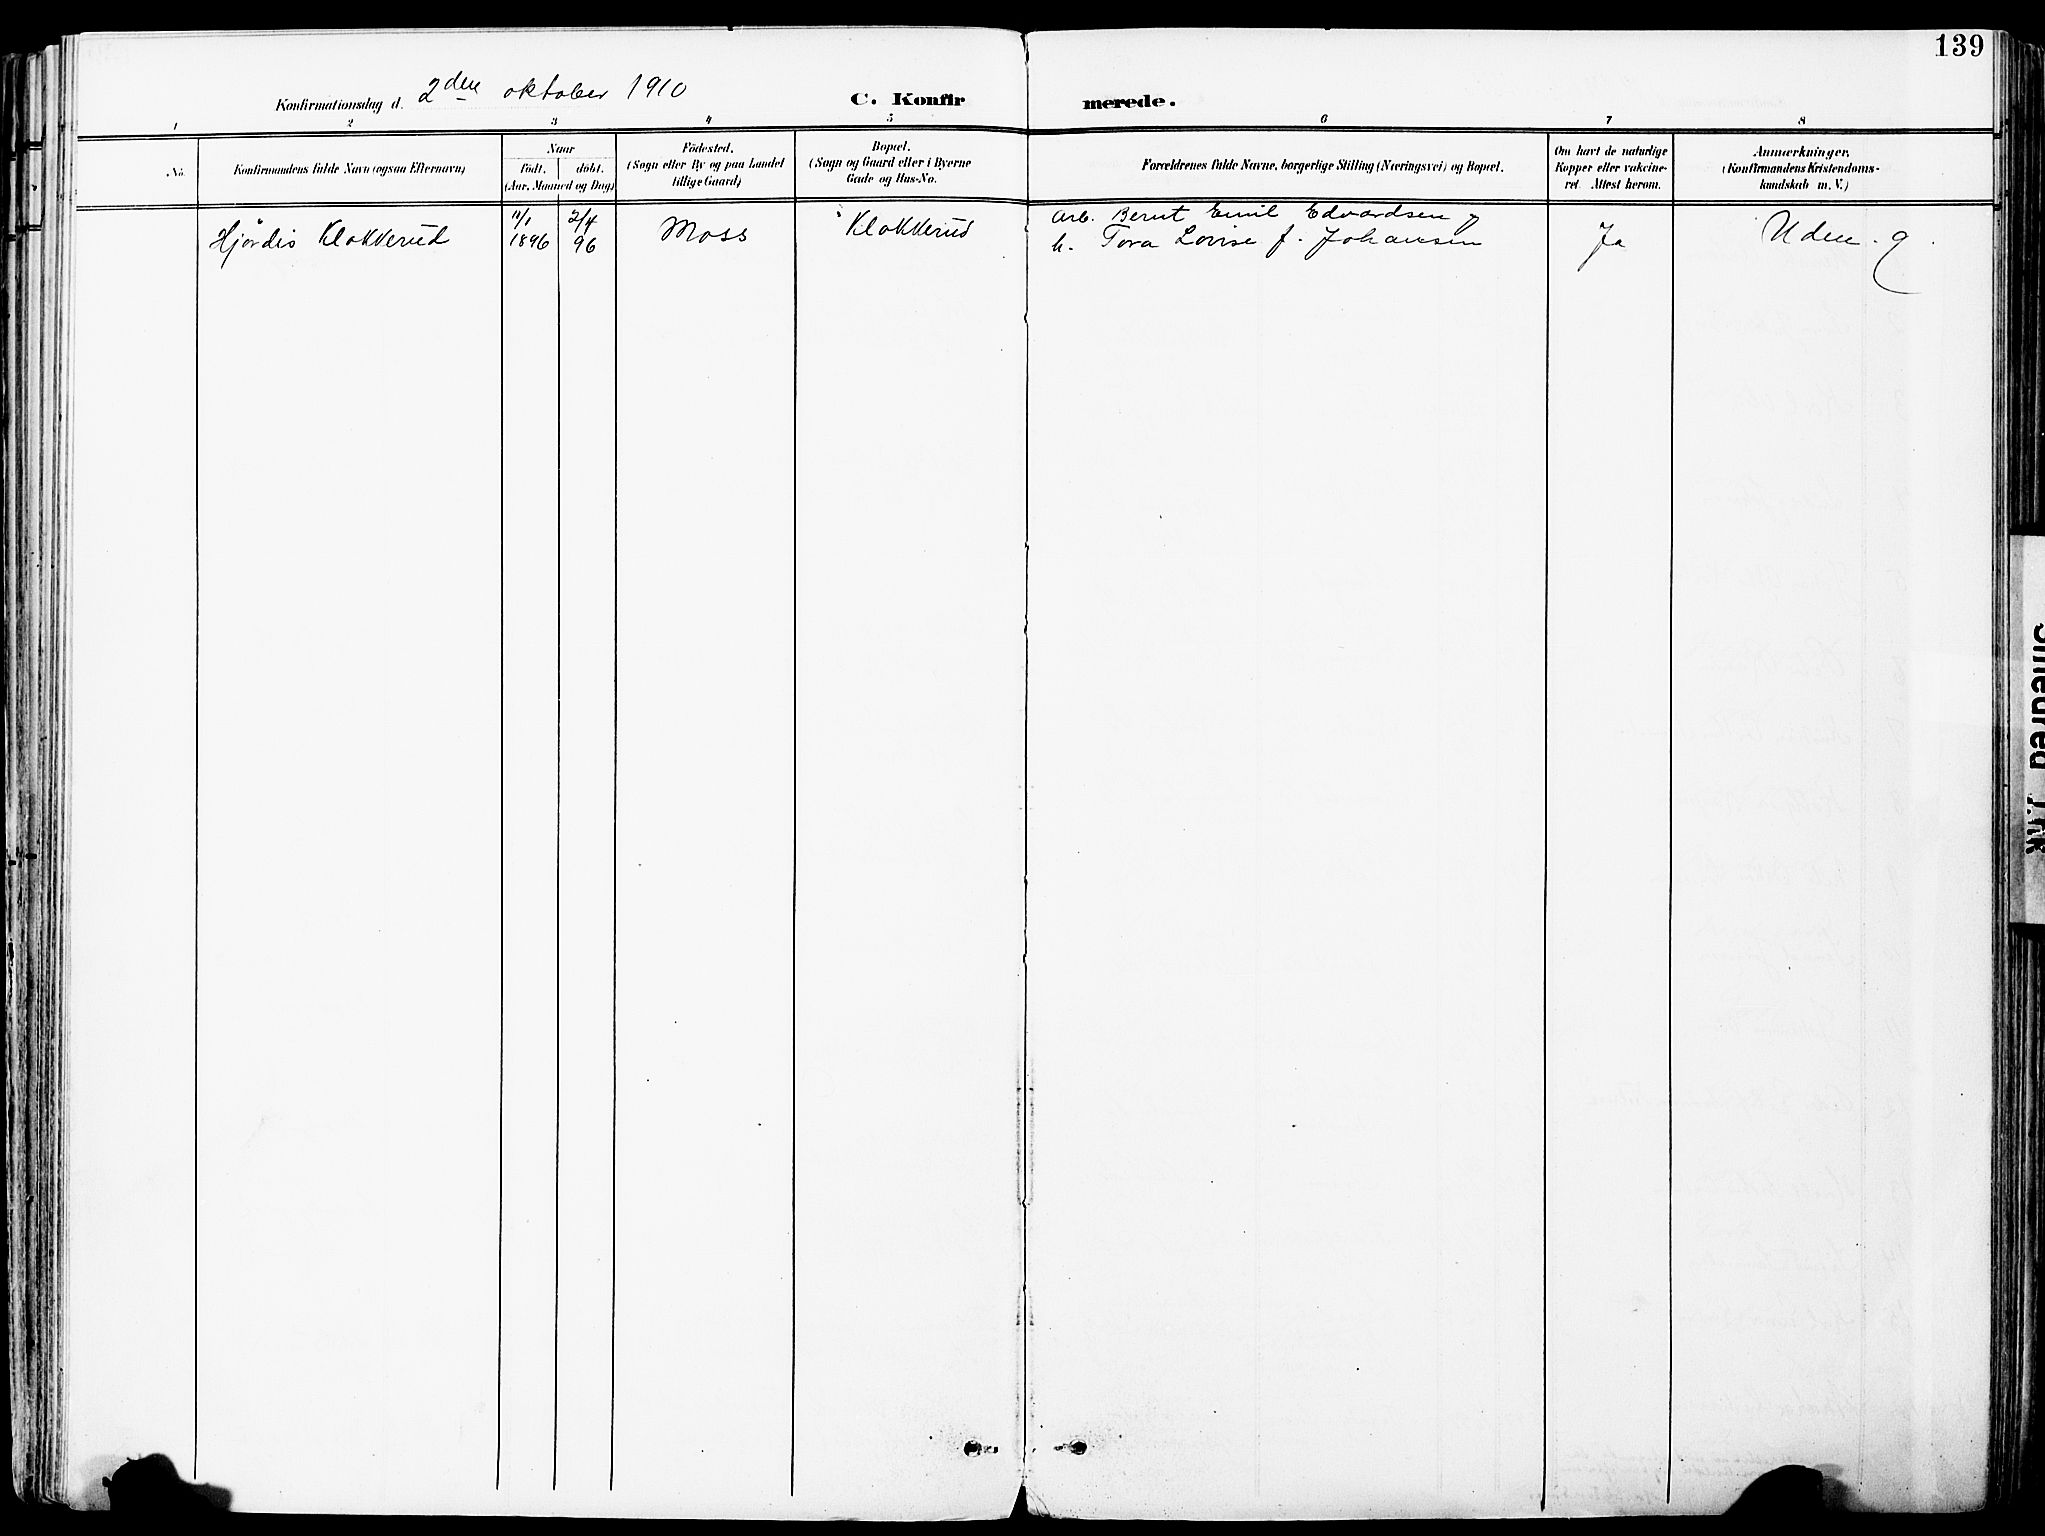 139
Konfirmationsdag d. 2den oktober 1910
C. Konfirmerede.
1 2 3 4 5 6 7 8
No.
Konfirmandens fulde Navn (ogsaa Efternavn)
Naar
født. døbt.
(Aar, Maaned og Dag)
Fødested.
(Sogn eller By og paa Landet
tillige Gaard)
Bopæl.
(Sogn og Gaard eller i Byerne
Gade og Hus-No.
Forældrenes fulde Navne, borgerlige Stilling (Næringsvei) og Bopæl.
Om havt de naturlige
Kopper eller vakcine-
ret. Attest herom.
Anmærkninger.
(Konfirmandens Kristendoms-
kundskab m. V.)
Hjördis Klokkerud
11/1
1896
2/4
96
Moss
Klokkerud
Arb. Bernt Emil Edvardsen og
h. Tora Lovise f. Johansen
Ja
Uden. g.